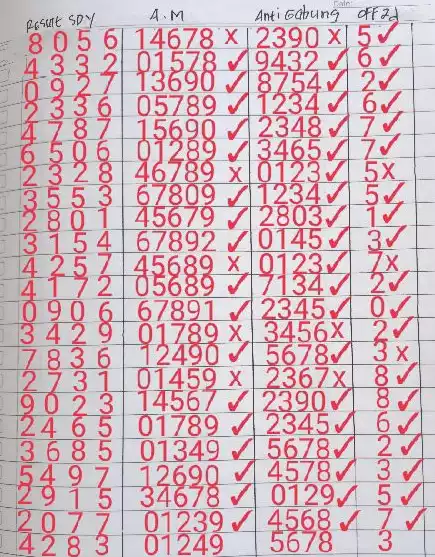 Result SDY A.M Anti Gabung OFF 2d
8056 14678 x 2390 x 5 ✓
4332 01578 ✓ 9432 ✓ 6 ✓
0927 13690 ✓ 8754 ✓ 2 ✓
2336 05789 ✓ 1234 ✓ 6 ✓
4787 15690 ✓ 2348 ✓ 7 ✓
6506 01289 ✓ 3465 ✓ 7 ✓
2328 46789 x 0123 ✓ 5 x
3553 67809 ✓ 1234 ✓ 5 ✓
2801 45679 ✓ 2803 ✓ 1 ✓
3154 67892 ✓ 0145 ✓ 3 ✓
4257 45689 x 0123 ✓ 7 x
4172 05689 ✓ 7134 ✓ 2 ✓
0906 67891 ✓ 2345 ✓ 0 ✓
3429 01789 x 3456 x 2 ✓
7836 12490 ✓ 5678 ✓ 3 x
2731 01459 x 2367 x 8 ✓
9023 14567 ✓ 2390 ✓ 8 ✓
2465 01789 ✓ 2345 ✓ 6 ✓
3685 01349 ✓ 5678 ✓ 2 ✓
5497 12690 ✓ 4578 ✓ 3 ✓
2915 34678 ✓ 0129 ✓ 5 ✓
2077 01239 ✓ 4568 ✓ 7 ✓
4283 01249 5678 3